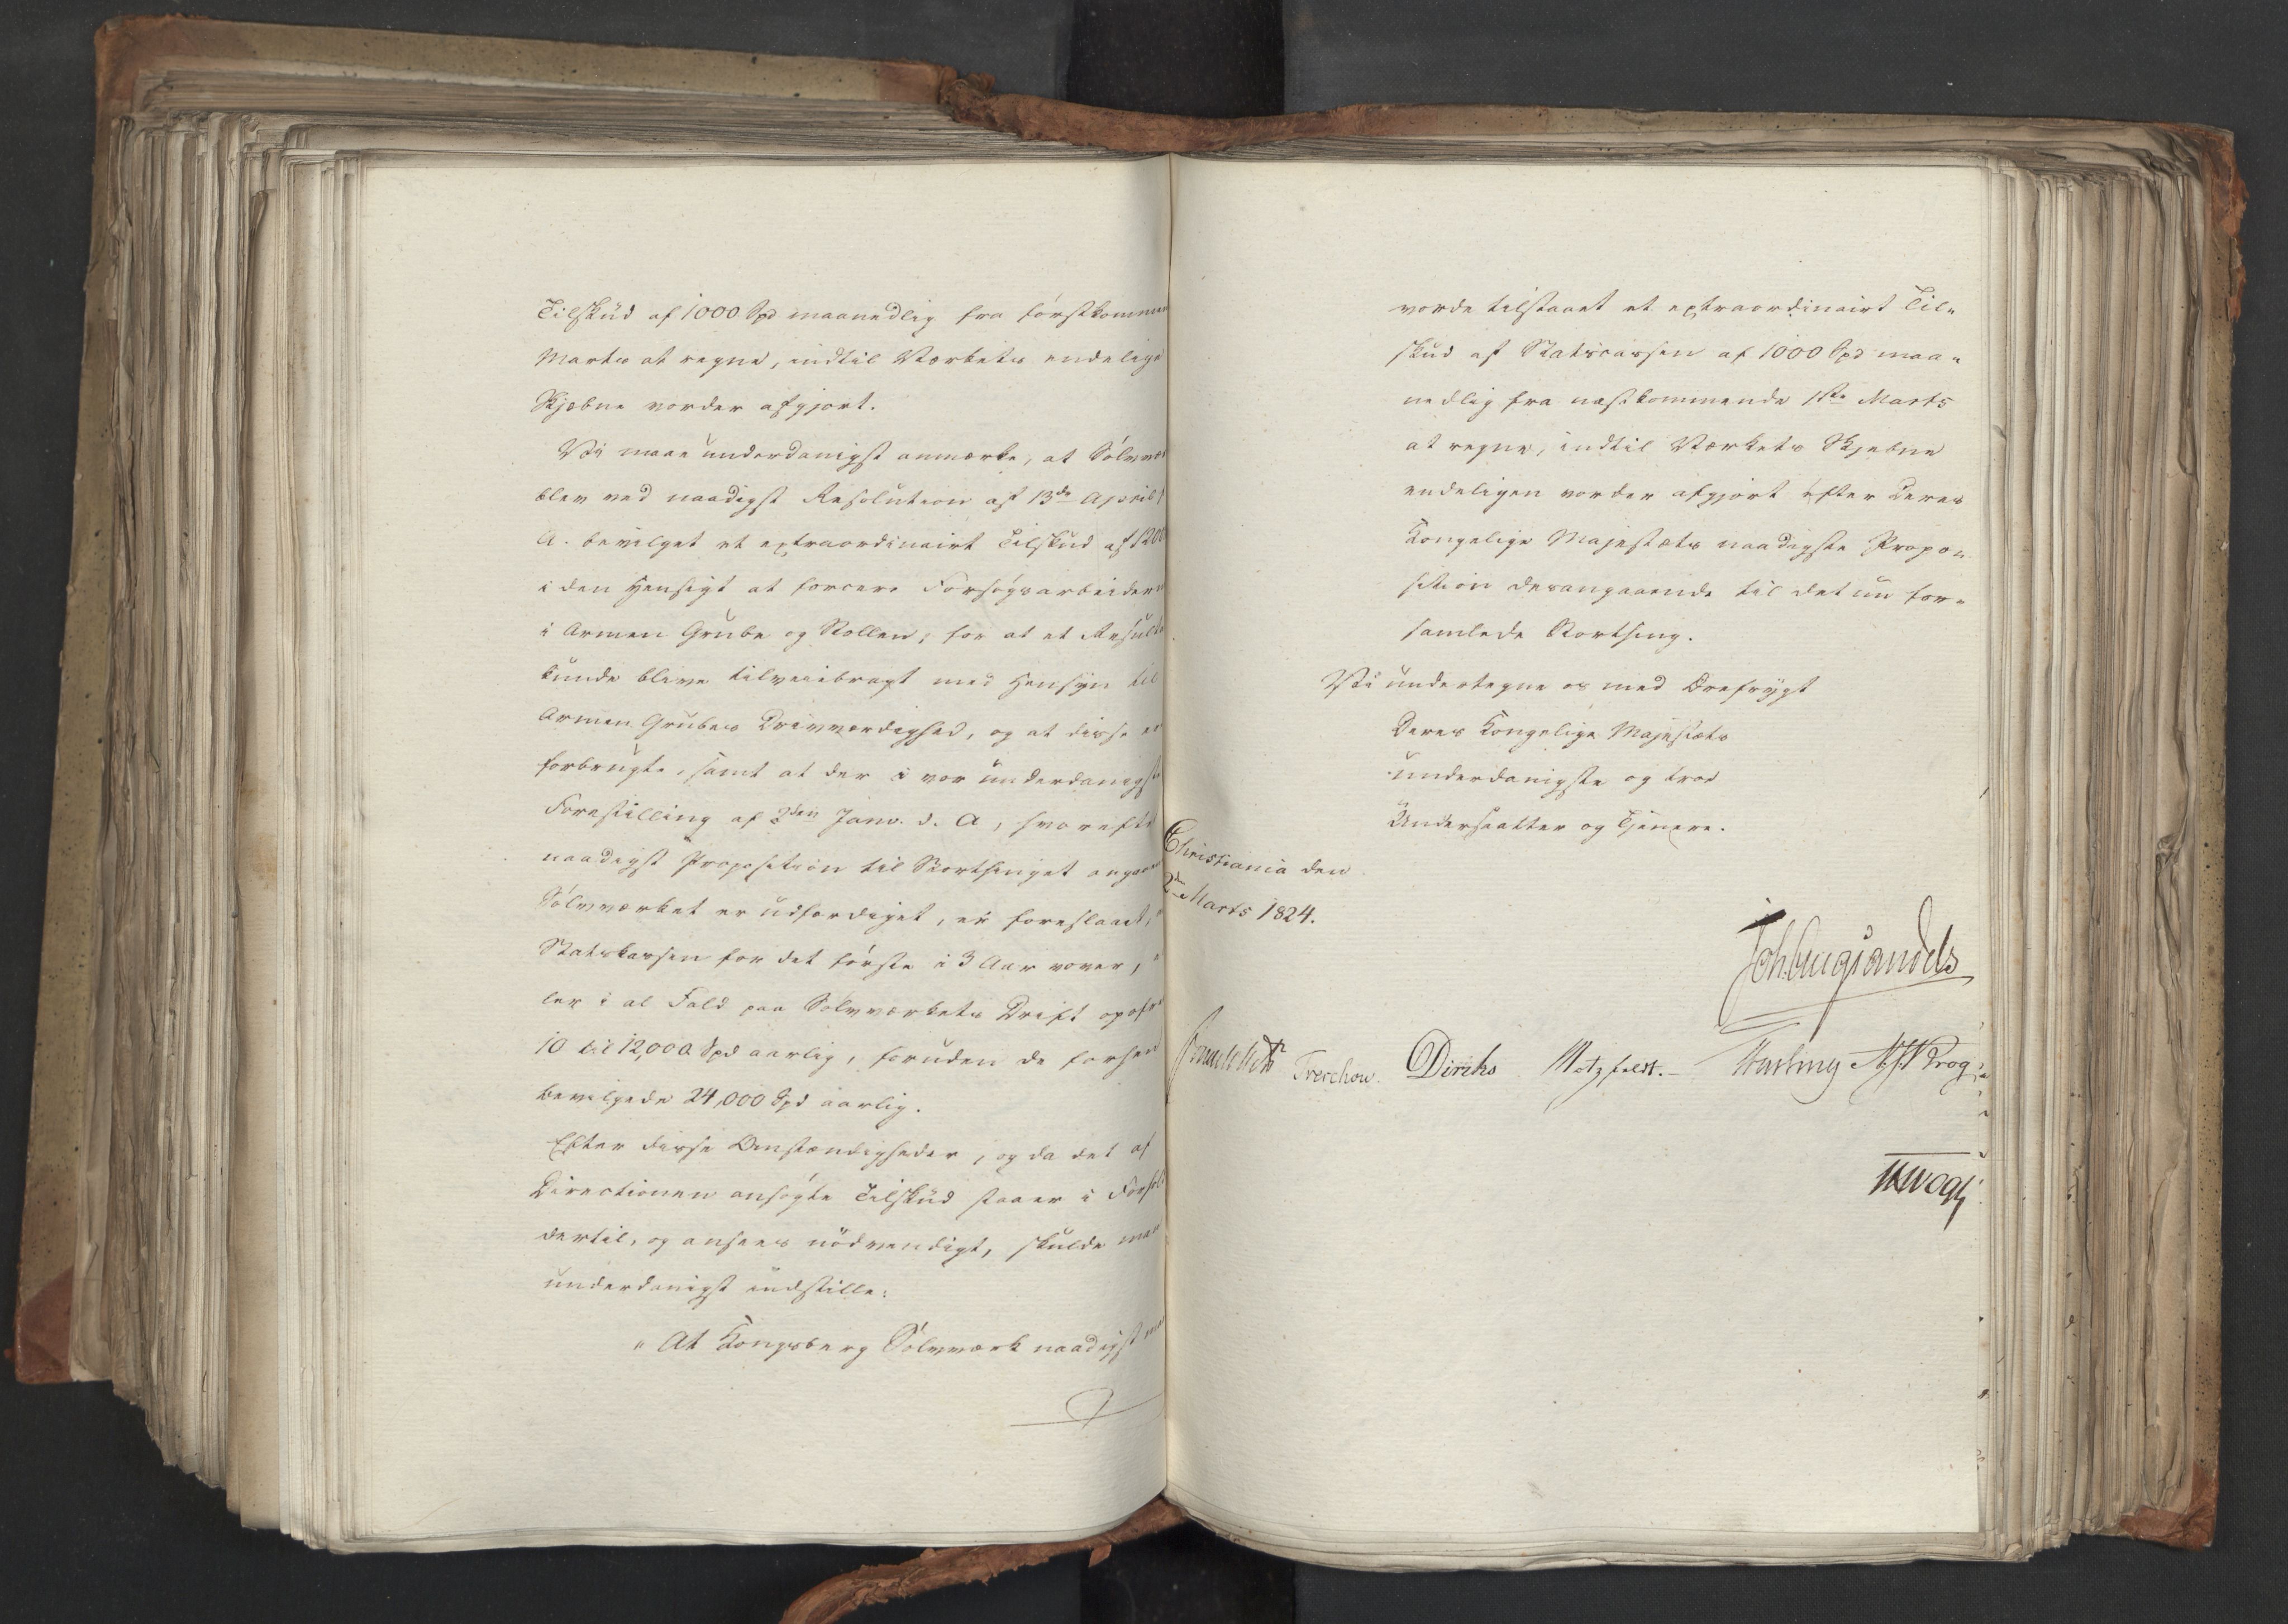 Tilskud af 1000 Spd maanedlig fra förstkomme
Marts at regne, indtil Værkets endelige
Skjæbne vorder afgjort.
Vi maae underdanigst anmærke, at Sölvvær
blev ved naadigst Resolution af 13de April f
A. bevilget et extraordinairt Tilskud af 1200
i den Hensigt at forcere Forsögsarbeidern
i Armen Grube og Stollen, for at et Result
kunde blive tilveiebragt med Hensyn til
Armen Grubes Drivværdighed, og at disse er
forbrugte, samt at der i vor underdanigste
Forestilling af 2den Janv. d. A, hvorefter
naadigst Proposition til Storthinget angaae
Sölvværket er udfærdiget, er foreslaaet,
Statskassen for det förste i 3 Aar vover,
ler i al Fald paa Sölvværkets Drift opofr
10 til 12,000 Spd aarlig, foruden de forhen
bevilgede 24,000 Spd aarlig.
Efter disse Omstændigheder, og da det af
Directionen ansögte Tilskud staaer i Forhol
dertil, og ansees nödvendigt, skulde man
underdanigst indstille:
" At Kongsberg Sölvværk naadigst maa
vorde tilstaaet et extraordinairt Til-
skud af Statscassen af 1000 Spd maa-
nedlig fra næstkommende 1ste Marts
at regne, indtil Værkets Skjebne
endeligen vorder afgjort efter Deres
Kongelige Majestæts naadigste Propo-
sition desangaaende til det nu for-
samlede Storthing.
Vi undertegne os med Ærefrygt
Deres Kongelige Majestæts
underdanigste og troe
Undersaatter og Tjenere.
Christiania den
2den Marts 1824.
Joh. Aug. Sandels
Treschow. Diriks Motzfeldt. Krog